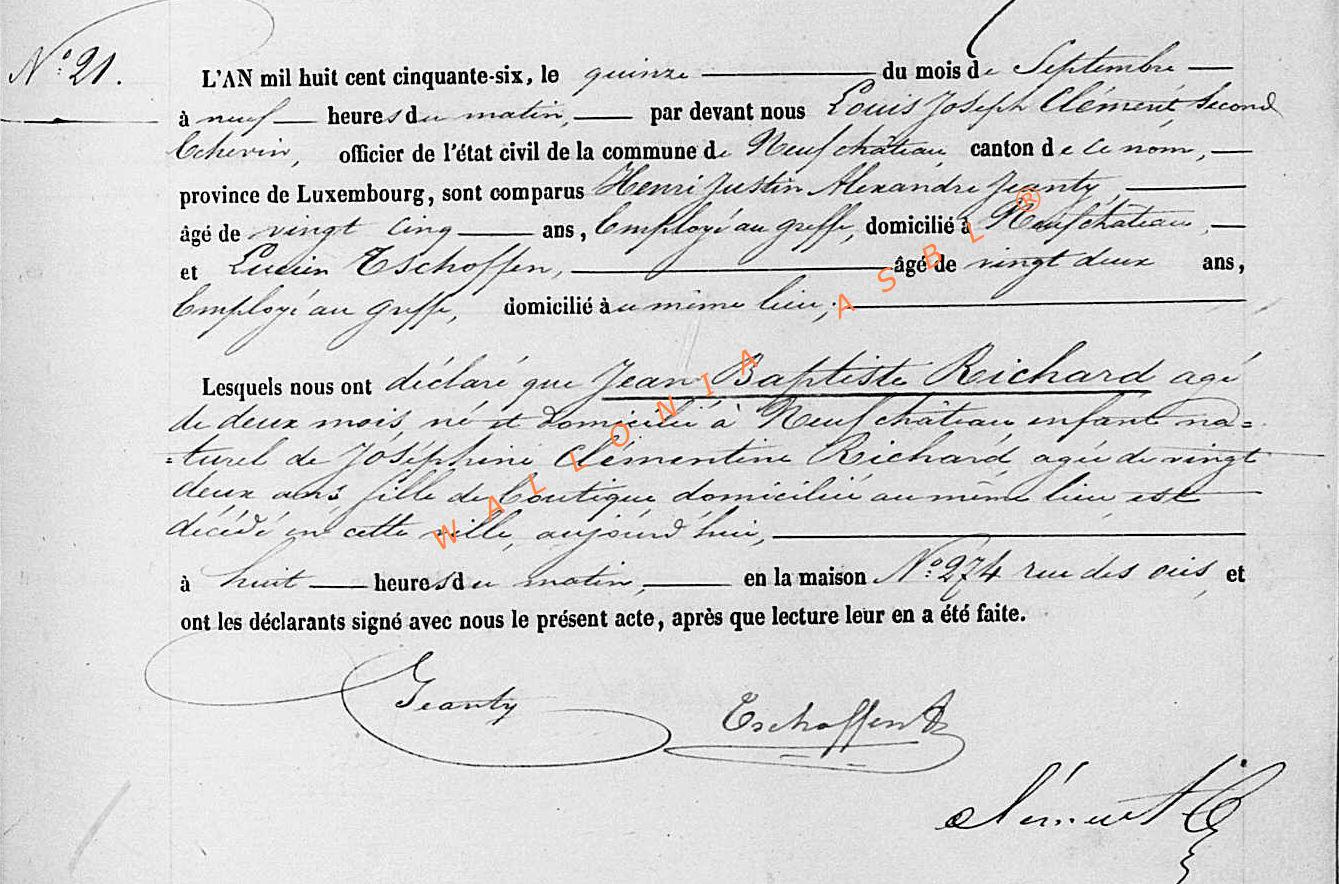 N° 21.
L'AN mil huit cent cinquante-six, le quinze du mois de Septembre
à neuf heures du matin, par devant nous Louis Joseph Clément, Second
Echevin, officier de l'état civil de la commune de Neufchâteau canton de ce nom,
province de Luxembourg, sont comparus Henri Justin Alexandre Jeanty,
âgé de vingt cinq ans, Employé au greffe, domicilié à Neufchâteau,
et Lucien Tschoffen, âgé de vingt deux ans,
Employé au greffe, domicilié au même lieu;
Lesquels nous ont déclaré que Jean Baptiste Richard agé
de deux mois, né et domicilié à Neufchâteau enfant na=
=turel de Joséphine Clémentine Richard, agée de vingt
deux ans, fille de boutique domiciliée au même lieu est
décédé en cette ville, aujourd'hui,
à huit heures du matin, en la maison N° 274 rue des , et
ont les déclarants signé avec nous le présent acte, après que lecture leur en a été faite.
Jeanty
Tschoffen
Clément
WALLONIA ASBL ®